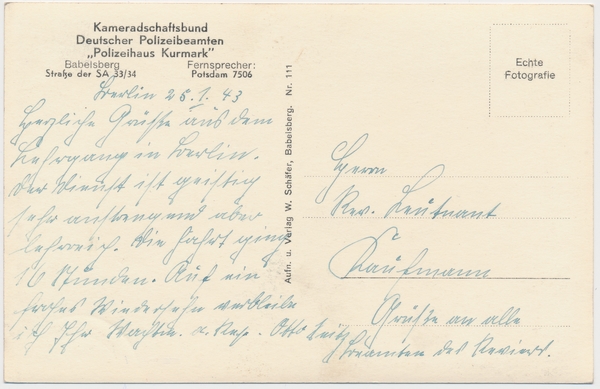 Kameradschaftsbund
Deutscher Polizeibeamten
„Polizeihaus Kurmark"
Babelsberg Fernsprecher:
Straße der SA 33/34 Potsdam 7506
Echte
Fotografie
Aufn. u. Verlag W. Schäfer, Babelsberg. Nr. 111
Berlin 26.1.43
Herzliche Grüße aus dem
Lehrgang in Berlin.
Der Dienst ist geistig
sehr anstrengend aber
lehrreich. Die Fahrt ging
16 Stunden. Auf ein
frohes Wiedersehn verbleibe
ich Ihr Wachtm. d. Res. Otto
Herrn
Rev. Leutnant
Kaufmann
Grüße an alle
Beamten des Reviers.